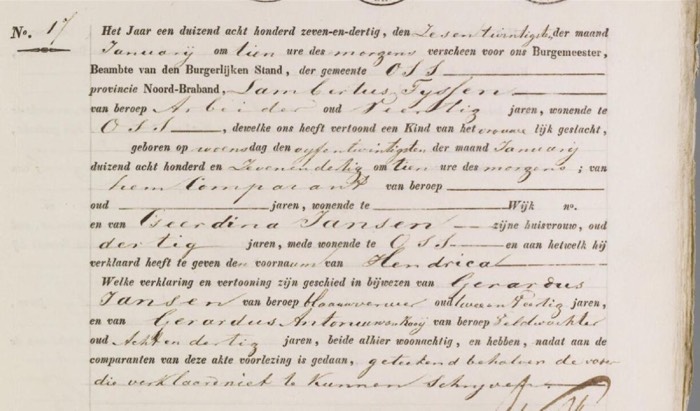 No. 17 Het Jaar een duizend acht honderd zeven-en-dertig, den Zesentwintigste der maand
Januarij om tien ure des morgens verscheen voor ons Burgemeester,
Beambte van den Burgerlijken Stand, der gemeente OSS
provincie Noord-Braband, Lambertus Tyssen
van beroep Arbeider oud Veertig jaren, wonende te
OSS, dewelke ons heeft vertoond een Kind van het vrouwe lijk geslacht,
geboren op woensdag den vyfentwintigsten der maand Januarij
duizend acht honderd en Zevenendertig om tien ure des morgens; van
hem Comparant van beroep
oud jaren, wonende te Wijk no.
en van Geerdina Jansen zijne huisvrouw, oud
dertig jaren, mede wonende te OSS en aan hetwelk hij
verklaard heeft te geven den voornaam van Hendrica
Welke verklaring en vertooning zijn geschied in bijwezen van Gerardus
Jansen van beroep blaauverver oud tween Veertig jaren,
en van Gerardus Antonius van Kooij van beroep Veldwachter
oud Achtendertig jaren, beide alhier woonachtig, en hebben, nadat aan de
comparanten van deze akte voorlezing is gedaan, geteekend behalven de vader
die verklaarde niet te kunnen schryven